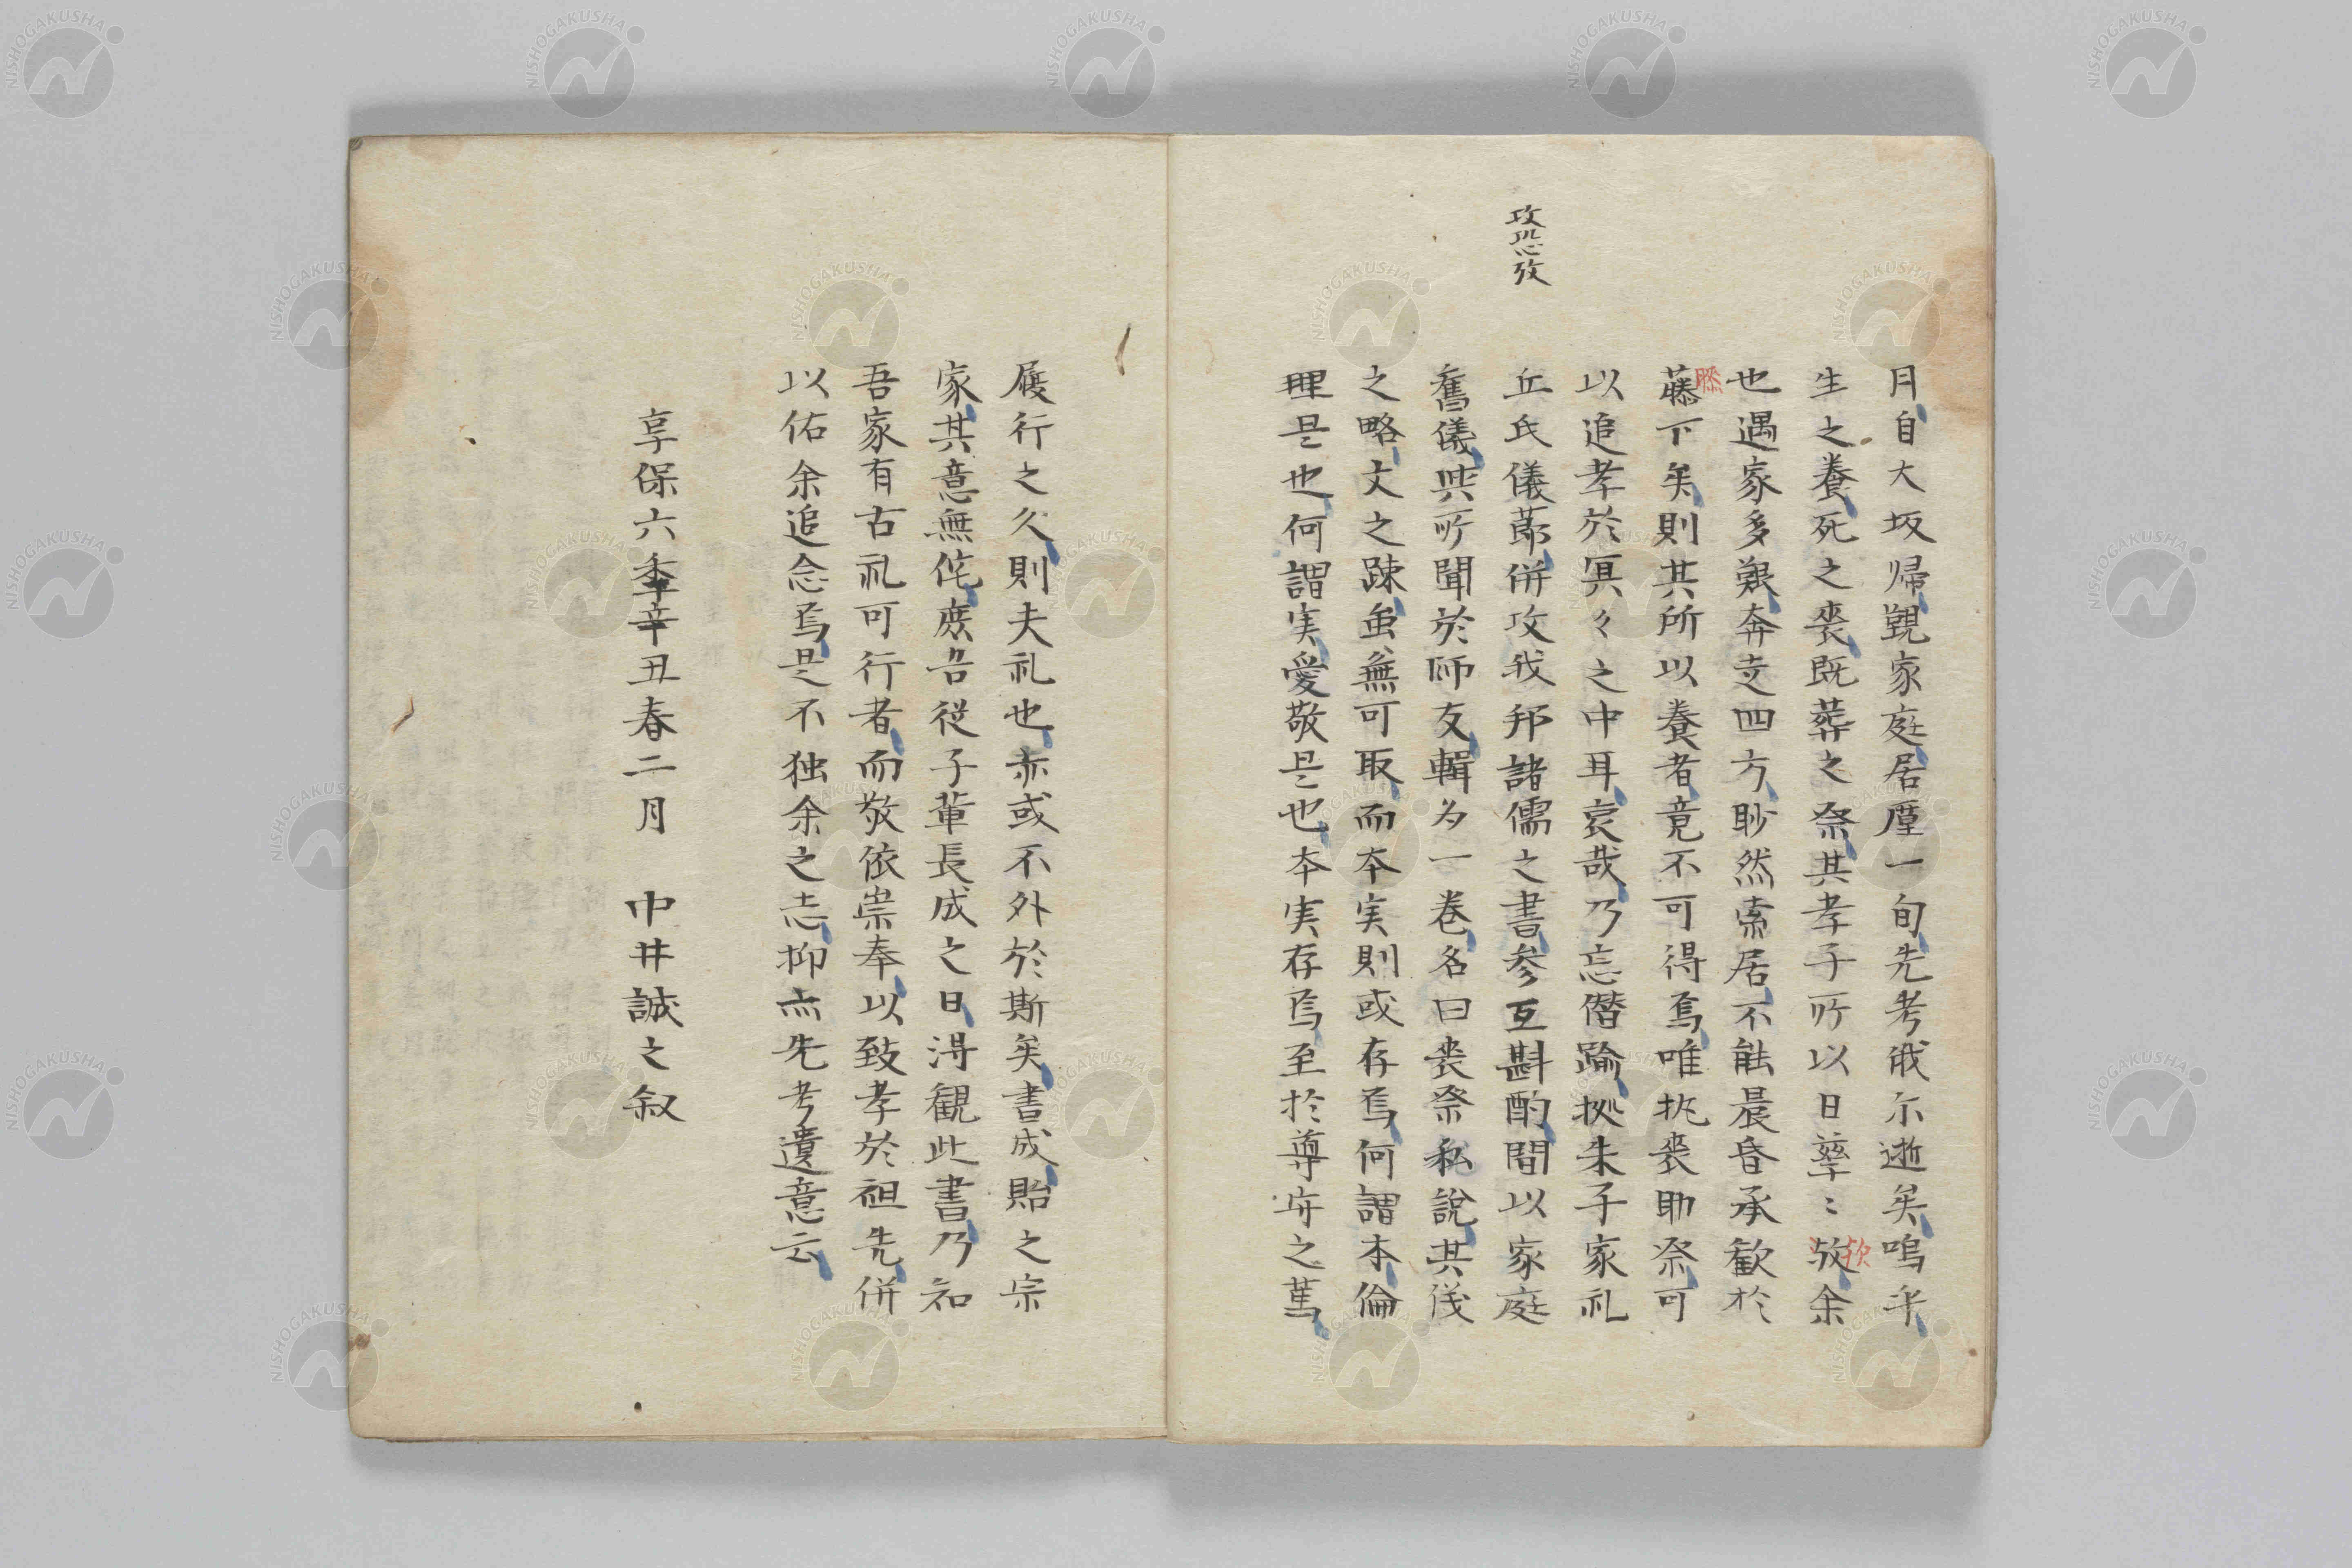 月自大坂帰觐家庭居廑一旬先考俄尓逝矣嗚乎
生之養死之喪既葬之祭其孝子所以日孳〻欬余
欤
也遇家多艱奔走四方眇然索居不能晨昏承歓於
藤下矣則其所以養者竟不可得焉唯执喪助祭可
膝
以追孝於冥々之中耳哀哉乃忘僭踰拠朱子家礼
丘氏儀莭併攻我邦諸儒之書参互斟酌間以家庭
攻恐攷
舊儀与所聞於师友輯为一巻名曰喪祭私説其浅
之略文之踈虽無可取而本実則或存焉何謂本倫
理是也何謂実愛敬是也本実存焉至於尊守之篤
履行之久則夫礼也亦或不外於斯矣書成貽之宗
家其意無侘庶㡬従子輩長成之日淂観此書乃知
吾家有古礼可行者而敬依崇奉以致孝於祖先併
以佑余追念焉是不独余之志抑亦先考遺意云
享保六季辛丑春二月 中井誠之叙
NISHOGAKUSHA